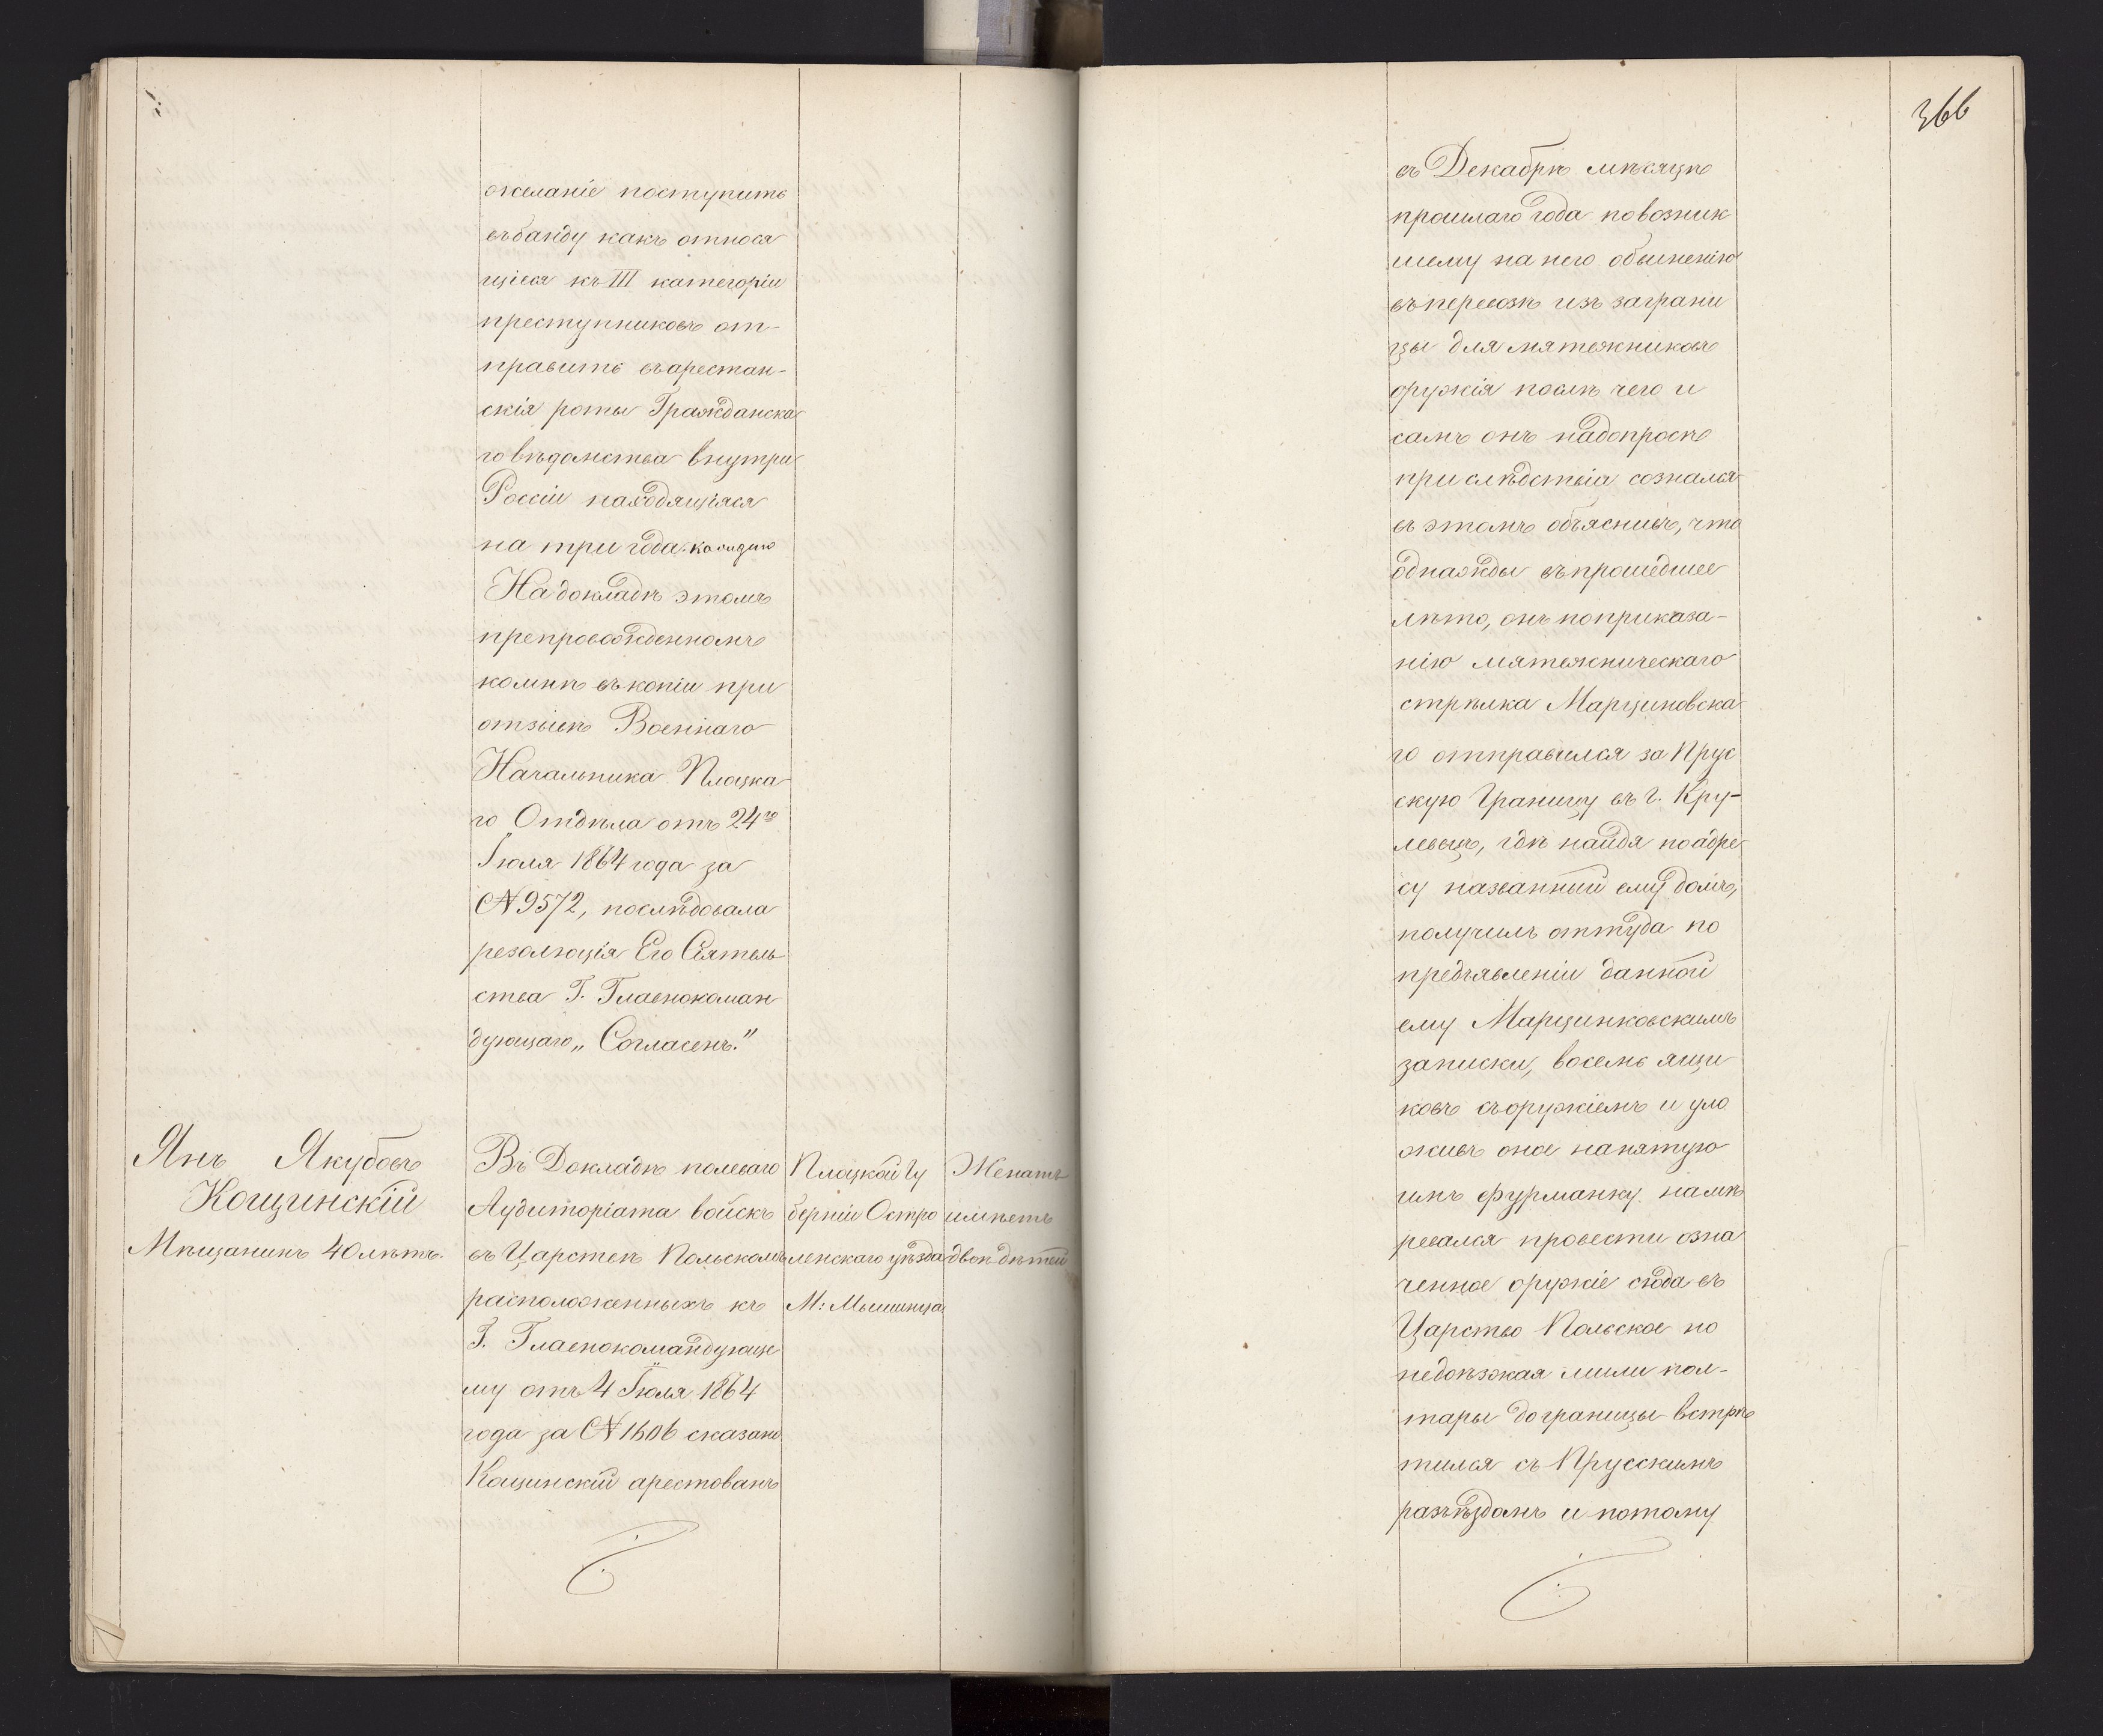 желаніе поступить
въ банду какъ относя
щіеся къ III категоріи
преступниковъ от-
править въ арестан-
скія роты Гражданска
го вѣдомства внутри
Россіи находящіяся
на три года каждаго
На докладѣ этомъ
препровожденномъ
ко мнѣ въ копіи при
отзывѣ Военнаго
Начальника Плоцка
го Отдѣла отъ 24го
Іюля 1864 года за
№ 9572, послѣдовала
резолюція Его Сіятель
ства Г. Главнокоман
дующаго „Согласенъ."
Янъ Якубовъ
Кощинскій
Мѣщанинъ 40 лѣтъ.
Въ Докладѣ полеваго
Аудиторіата войскъ
въ Царствѣ Польскомъ
расположенныхъ къ
Г. Главнокомандующе
му отъ 4 Іюля 1864
года за № 1606 сказано
Кощинскій арестованъ
Плоцкой Гу
берніи Остро
ленскаго уѣзда
М: Мышинца
Женатъ
имѣетъ
двое дѣтей
366
въ Декабрѣ мѣсяцѣ
прошлаго года по возник
шему на него обвиненію
въ перевозѣ изъ заграни
цы для мятежниковъ
оружія послѣ чего и
самъ онъ на допросѣ
при слѣдствіи сознался
въ этомъ объяснивъ, что
однажды въ прошедшее
лѣто, онъ по приказа-
нію мятежническаго
стрѣлка Марциновска
го отправился за Прус
скую Границу въ г. Кру-
левецъ, гдѣ найдя по адре
су названный ему домъ,
получилъ оттуда по
предъявленіи данной
ему Марцинковскимъ
записки, восемь ящи
ковъ съ оружіемъ и уло
живъ оное на нятую
имъ фурманку намѣ
ревался провести озна
ченное оружіе сюда въ
Царство Польское но
недоѣзжая мили пол-
торы до границы встрѣ
тился съ Прусскимъ
разъѣздомъ и потому